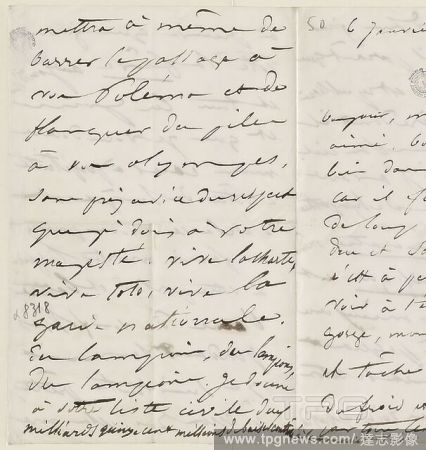 mettra à même de
barrer le passage à
vos Polémos et de
flanquer du pile
à vos olympiques,
sans préjudice du respect
que je dois à votre
majesté. vive la charte,
vive toto, vive la
garde nationale.
Des lampions, des lampions,
des lampions. Je donne
à votre liste civile deux
milliards quinze cent millions de
α 8318
50 6 Janvier
bonjour, m
aimé. bo
bien dou
car il f
de loup,
dou et
c'est à p
voir à t
gorge, mon
et tâche
du froid e
TPG
www.tpgnews.com/達志影像